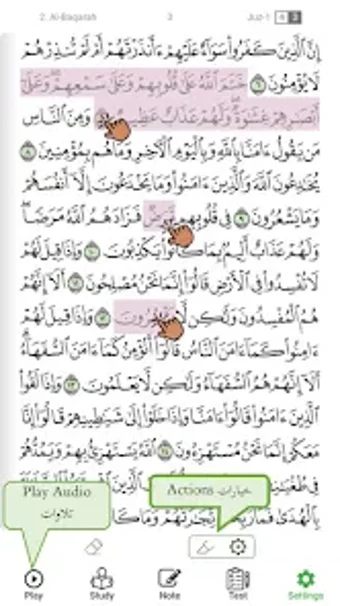 2. Al-Baqarah 3 Juz-1
إِنَّ ٱلَّذِينَ كَفَرُوا۟ سَوَآءٌ عَلَيْهِمْ ءَأَنذَرْتَهُمْ أَمْ لَمْ تُنذِرْهُمْ
لَا يُؤْمِنُونَ ٦ خَتَمَ ٱللَّهُ عَلَىٰ قُلُوبِهِمْ وَعَلَىٰ سَمْعِهِمْ ۖ وَعَلَىٰٓ
أَبْصَٰرِهِمْ غِشَٰوَةٌ ۖ وَلَهُمْ عَذَابٌ عَظِيمٌ وَمِنَ ٱلنَّاسِ
مَن يَقُولُ ءَامَنَّا بِٱللَّهِ وَبِٱلْيَوْمِ ٱلْءَاخِرِ وَمَا هُم بِمُؤْمِنِينَ ٨
يُخَٰدِعُونَ ٱللَّهَ وَٱلَّذِينَ ءَامَنُوا۟ وَمَا يَخْدَعُونَ إِلَّآ أَنفُسَهُمْ
وَمَا يَشْعُرُونَ ٩ فِى قُلُوبِهِم مَّرَضٌ فَزَادَهُمُ ٱللَّهُ مَرَضًا ۖ
وَلَهُمْ عَذَابٌ أَلِيمٌۢ بِمَا كَانُوا۟ يَكْذِبُونَ ١٠ وَإِذَا قِيلَ لَهُمْ
لَا تُفْسِدُوا۟ فِى ٱلْأَرْضِ قَالُوٓا۟ إِنَّمَا نَحْنُ مُصْلِحُونَ ١١ أَلَآ إِنَّهُمْ
هُمُ ٱلْمُفْسِدُونَ وَلَٰكِن لَّا يَشْعُرُونَ ١٢ وَإِذَا قِيلَ لَهُمْ
ءَامِنُوا۟ كَمَآ ءَامَنَ ٱلنَّاسُ قَالُوٓا۟ أَنُؤْمِنُ كَمَآ ءَامَنَ ٱلسُّفَهَآءُ ۗ
أَلَآ إِنَّهُمْ هُمُ ٱلسُّفَهَآءُ وَلَٰكِن لَّا يَعْلَمُونَ ١٣ وَإِذَا لَقُوا۟
ٱلَّذِينَ ءَامَنُوا۟ قَالُوٓا۟ ءَامَنَّا وَإِذَا خَلَوْا۟ إِلَىٰ شَيَٰطِينِهِمْ قَالُوٓا۟ إِنَّا
مَعَكُمْ إِنَّمَا نَحْنُ مُسْتَهْزِءُونَ ١٤ ٱللَّهُ يَسْتَهْزِئُ بِهِمْ وَيَمُدُّهُمْ
فِى ٱلَّذِينَ
بِٱلْهُدَىٰ فَمَا رَبِحَت تِّجَٰرَتُهُمْ وَمَا
Play Audio
تلاوات
Actions خيارات
Play Study Note Test Settings